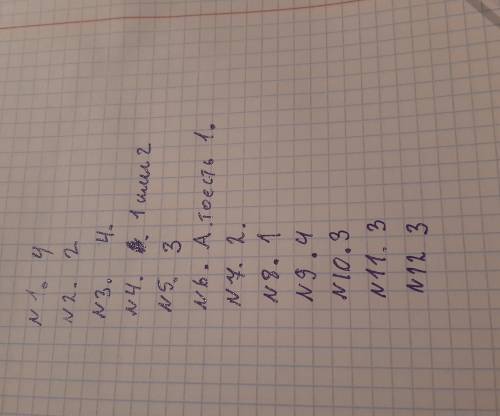 N1. 4
N2. 2
N3. 4.
N4. 1 или 2
N5. 3
N6. А. тоесть 1.
N7. 2.
N8. 1
N9. 4
N10. 3
N11. 3
N12 3